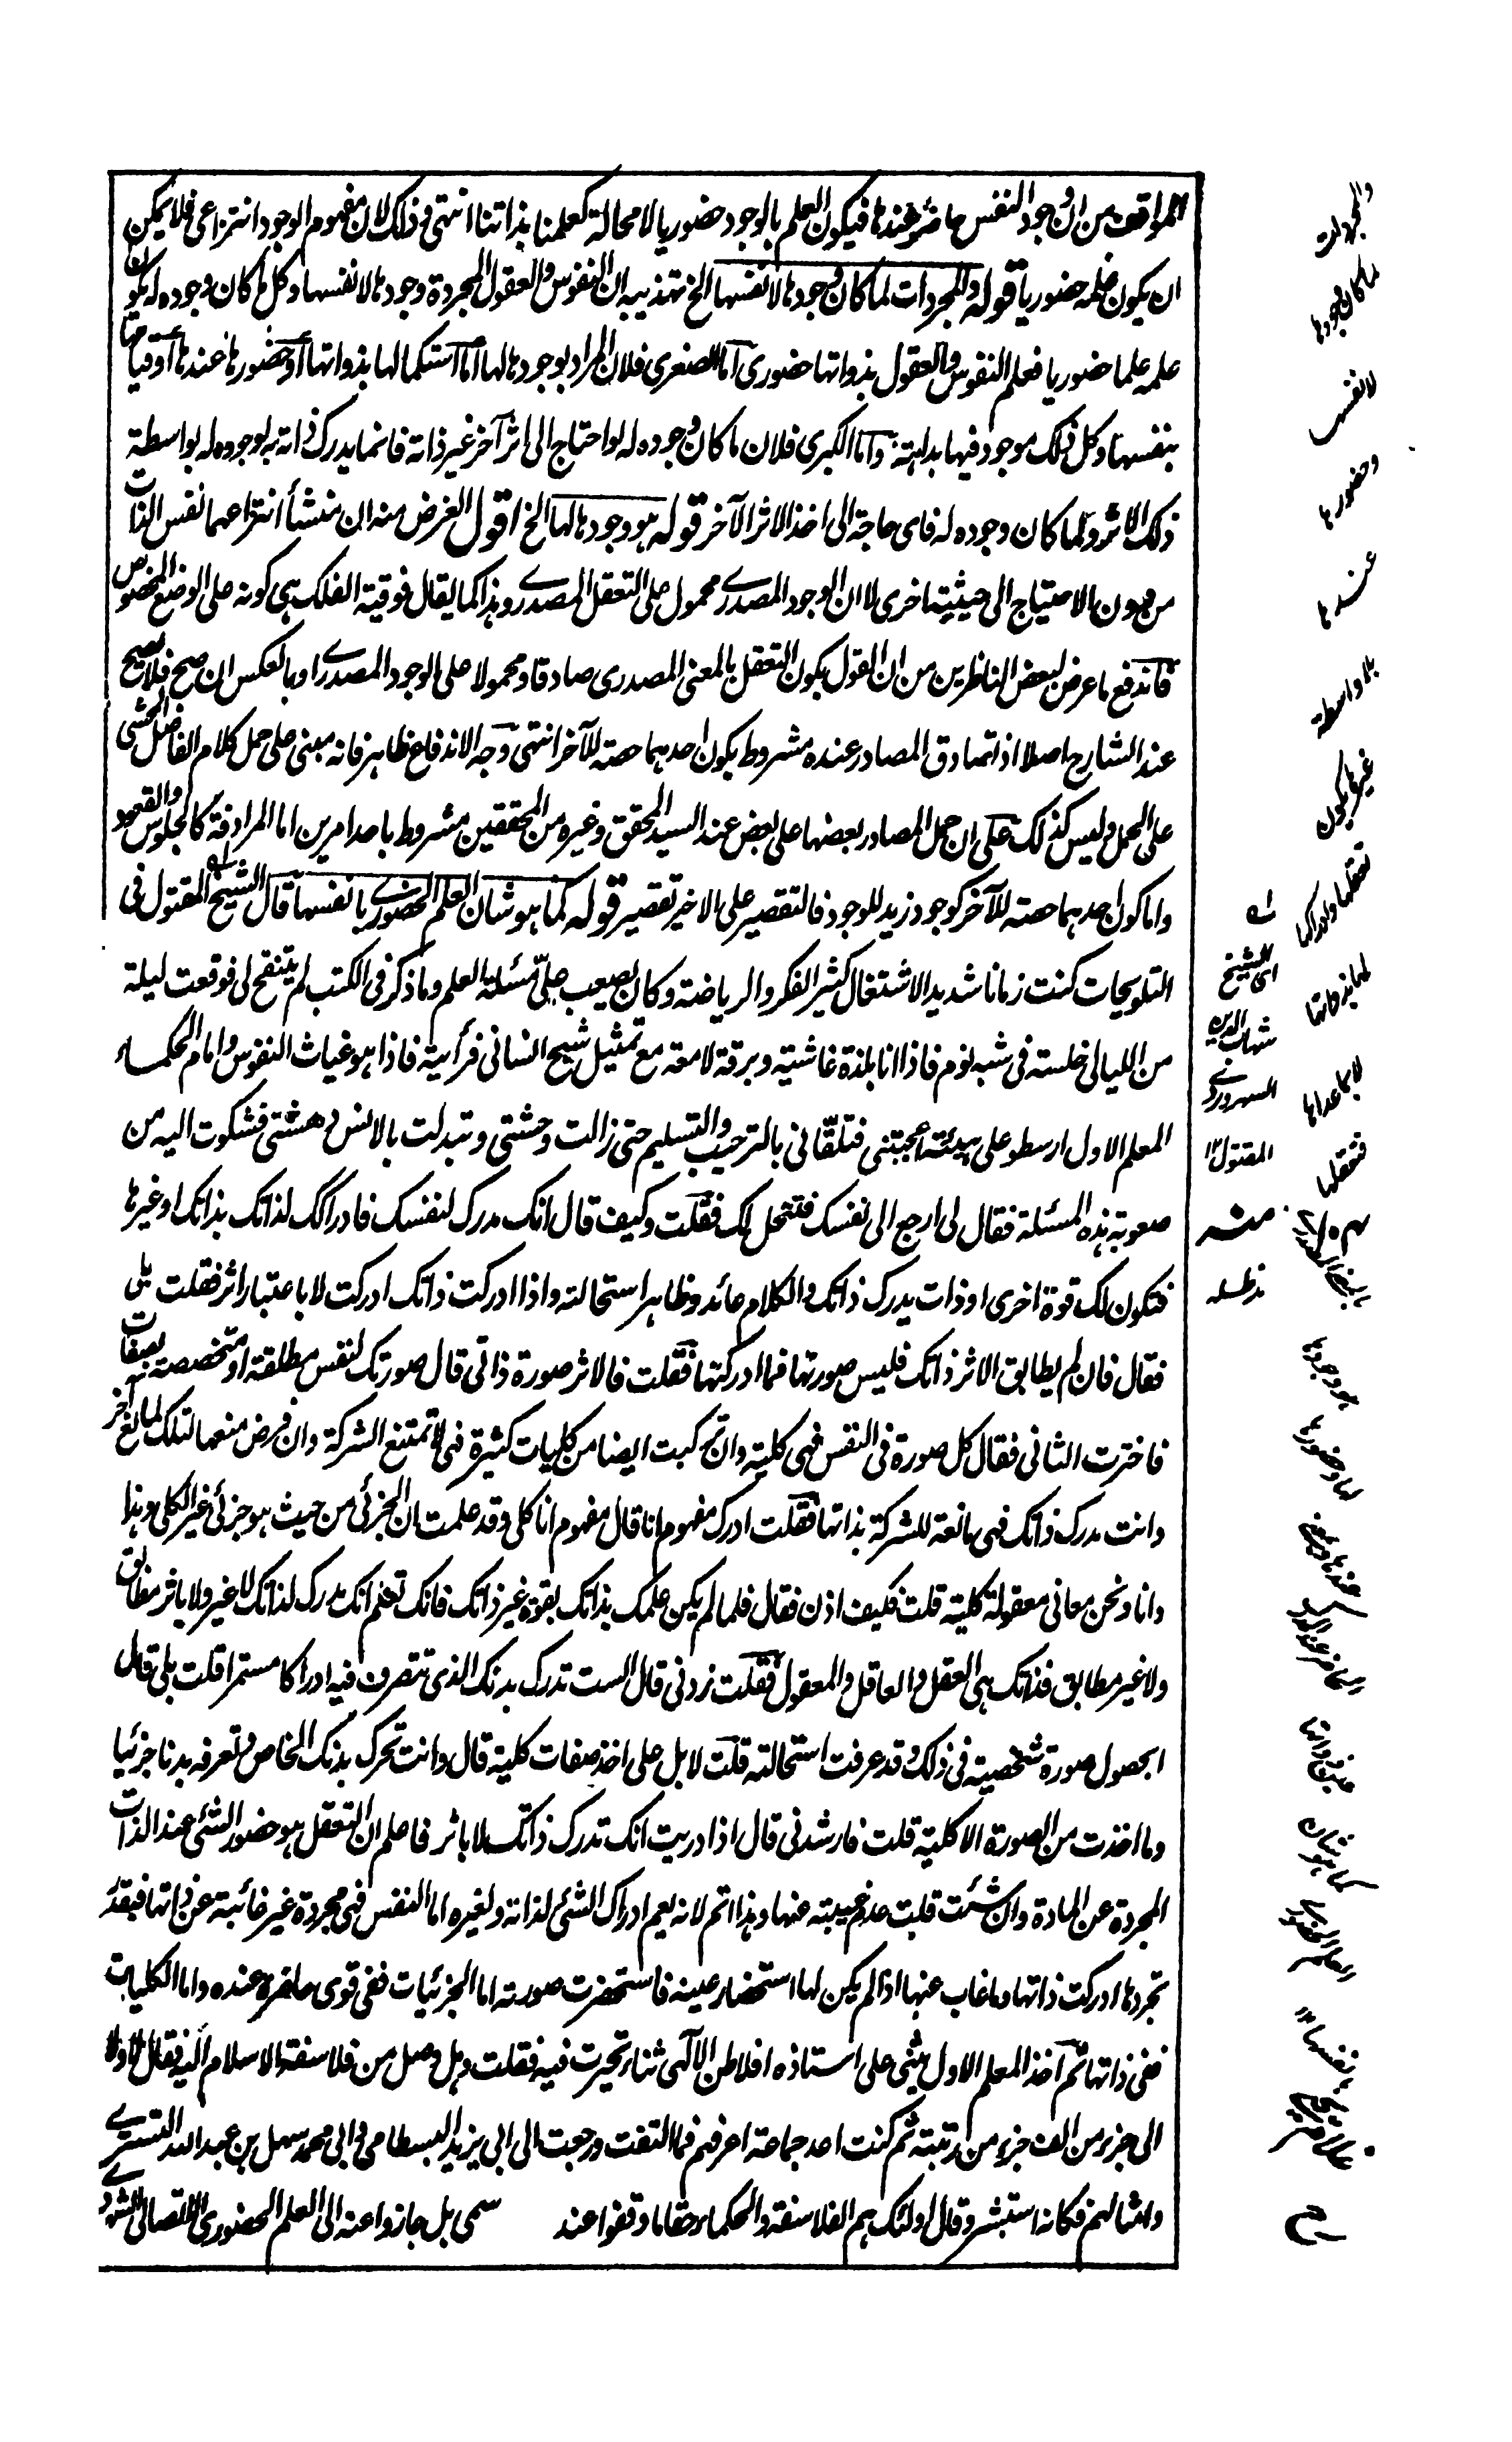 المواقف من ان وجود النفس حاضر عندها فيكون العلم بالوجود حضوريا لا محالة كعلمنا بذاتنا انتهى وذلك لان مفهوم الوجود انتزاعى فلا يمكن
ان يكون علمه حضوريا قوله والمجردات لما كان وجودها لانفسها الخ تهذيبه ان النفوس والعقول المجردة وجودها لانفسها وكل ما كان وجوده له يكون
علمه علما حضوريا فعلم النفوس والعقول بذواتها حضورى اما الصغرى فلان المراد بوجودها لها اما استكمالها بذواتها او حضورها عندها او قيامها
بنفسها وكل ذلك موجود فيها بداهتة واما الكبرى فلان ما كان وجوده له لو احتاج الى اثر آخر غير ذاته فانما يدرك ذاته به لوجوده له بواسطة
ذلك الاثر ولما كان وجوده له فاى حاجة الى اخذ الاثر الآخر قوله هو وجودها لها الخ اقول الغرض منه ان منشأ انتزاعهما نفس الذات
من دون الاحتياج الى حيثية اخرى لا ان الوجود المصدرے محمول على التعقل المصدرے وهذا كما يقال فوقية الفلك هى كونه على الوضع المخصوص
فاندفع ما عرض لبعض الناظرين من ان القول بكون التعقل بالمعنى المصدرى صادقا ومحمولا على الوجود المصدرے او بالعكس ان صح فلا يصح
عند الشارح اصلا اذ تصادق المصادر عنده مشروط بكون احدهما حصته للآخر انتهى وجه الاندفاع ظاهر فانه مبنى على حمل كلام الفاضل المحشى
على الحمل وليس كذلك على ان حمل المصادر بعضها على بعض عند السيد المحقق وغيره من المحققين مشروط باحد امرين اما المرادفة كالجلوس والقعود
واما كون احدهما حصته للآخر كوجود زيد للوجود فالتقصير على الاخير تقصير قوله كما هو شان العلم الحضورے بانفسها قال الشيخ المقتول فى
التلويحات كنت زمانا شديد الاشتغال كثير الفكر والرياضة وكان يصعب علىّ مسئلة العلم وما ذكر فى الكتب لم يتنقح لى فوقعت ليلة
من الليالى خلسته فى شبه نوم فاذا انا بلذة غاشية وبرقة لامعة مع تمثيل شبح انسانى فرأيته فاذا هو غياث النفوس وامام الحكماء
المعلم الاول ارسطو على هيئة اعجبتنى فتلقّانى بالترحيب والتسليم حتى زالت وحشتى وتبدلت بالانس دهشتى فشكوت اليه من
صعوبة هذه المسئلة فقال لى ارجع الى نفسك فتنحل لك فقلت وكيف قال انك مدرك لنفسك فادراكك لذاتك بذاتك او غيرها
فتكون لك قوة اخرى او ذات يدرك ذاتك والكلام عائد وظاهر استحالته واذا ادركت ذاتك ادركت لا باعتبار اثر فقلت بلى
فقال فان لم يطابق الاثر ذاتك فليس صورتها فما ادركتها فقلت فالاثر صورة ذاتى قال صورتك لنفس مطلقة او متخصصة بصفات
فاخترت الثانى فقال كل صورة فى النفس فهى كلية وان تركبت ايضا من كليات كثيرة فهى لا تمتنع الشركة وان فرض منعها لتلك لمانع آخر
وانت مدرك ذاتك فهى مانعة للشركة بذاتها فقلت ادرك مفهوم انا قال مفهوم انا كلى وقد علمت ان الجزئى من حيث هو جزئى غير الكلى وهذا
وانا ونحن معانى معقولة كلية قلت فكيف اذن فقال فلما لم يكن علمك بذاتك بقوة غير ذاتك فانك تعلم انك مدرك لذاتك لا غير ولا باثر مطابق
ولا غير مطابق فذاتك هى العقل والعاقل والمعقول فقلت زدنى قال الست تدرك بدنك الذى تتصرف فيه ادراكا مستمرا قلت بلى قال
ابحصول صورة شخصية فى ذلك وقد عرفت استحالته قلت لا بل على اخذ صفات كلية قال وانت تحرك بدنك الخاص وتعرفه بدنا جزئيا
وما اخذت من الصورة الا كلية قلت فارشدنى قال اذا دريت انك تدرك ذاتك لا باثر فاعلم ان التعقل هو حضور الشئ عند الذات
المجردة عن المادة وان شئت قلت عدم غيبته عنها وهذا اتم لانه يعم ادراك الشئ لذاته ولغيره اما النفس فهى مجردة غير غائبة عن ذاتها فبقدر
تجردها ادركت ذاتها وما غاب عنها اذا لم يكن لها استحضار عينه فاستحضرت صورته اما الجزئيات ففى قوى حاضرة عنده واما الكليات
ففى ذاتها ثم اخذ المعلم الاول يثنى على استاذه افلاطن الالٓهى ثناء تحيرت فيه فقلت وهل وصل من فلاسفة الاسلام اليه فقال لا ولا
الى جزء من الف جزء من رتبته ثم كنت اعد جماعة اعرفهم فما التفت ورجعت الى ابى يزيد البسطامى وابى محمد سهل بن عبد الله التسترے
وامثالهم فكانه استبشر وقال اولئك هم الفلاسفة والحكماء حقا ما وقفوا عند سمى بل جازوا عنه الى العلم الحضورى الاتصالى
والمجردات
لما كان وجودها
لانفسها
وحضورها
عندها
بلا واسطة
غيرها يكون
تعقلها وادراكها
لها بذاتها
لا بما عداها
فتعقلها
هو وجودها
لها وحضورها
كما هو شان
العلم الحضورى
بانفسها
له
اى الشيخ
شهاب الدين
السهروردے
المقتول
منه
مدظله